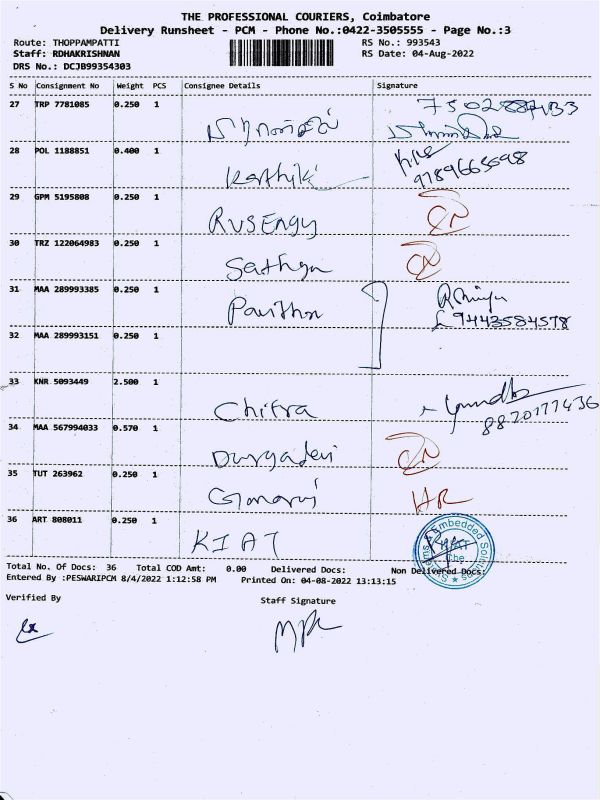 THE PROFESSIONAL COURIERS, Coimbatore
Delivery Runsheet - PCM - Phone No.:0422-3505555 - Page No.:3
Route: THOPPAMPATTI RS No.: 993543
Staff: RDHAKRISHNAN RS Date: 04-Aug-2022
DRS No.: DCJB99354303
S No Consignment No Weight PCS Consignee Details Signature
27 TRP 7781085 0.250 1
28 POL 1188851 0.400 1 Karthik 9789665698
29 GPM 5195808 0.250 1 RVS Engg
30 TRZ 122064983 0.250 1 Sathya
31 MAA 289993385 0.250 1 Pavithra 9443584578
32 MAA 289993151 0.250 1
33 KNR 5093449 2.500 1 Chitra 8820177436
34 MAA 567994033 0.570 1 Durgadevi
35 TUT 263962 0.250 1 HR
36 ART 808011 0.250 1 KIAT Embedded Solutions
Total No. Of Docs: 36 Total COD Amt: 0.00 Delivered Docs: Non Delivered Docs:
Entered By :PESWARIPCM 8/4/2022 1:12:58 PM Printed On: 04-08-2022 13:13:15
Verified By Staff Signature